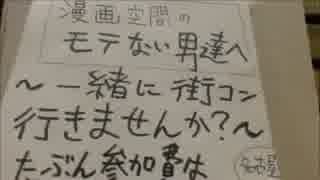 漫画空間の
モテない男達へ
～一緒に街コン
行きませんか?～
たぶん参加費は
名古屋